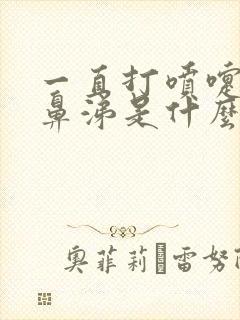 一直打噴嚏
鼻涕是什麼
奧菲莉·雷努阿